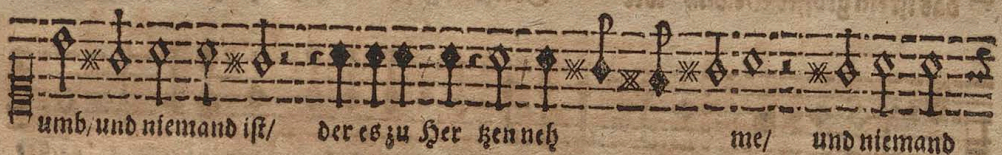 umb/und niemand ist/ der es zu Her tzen neh me/ und niemand